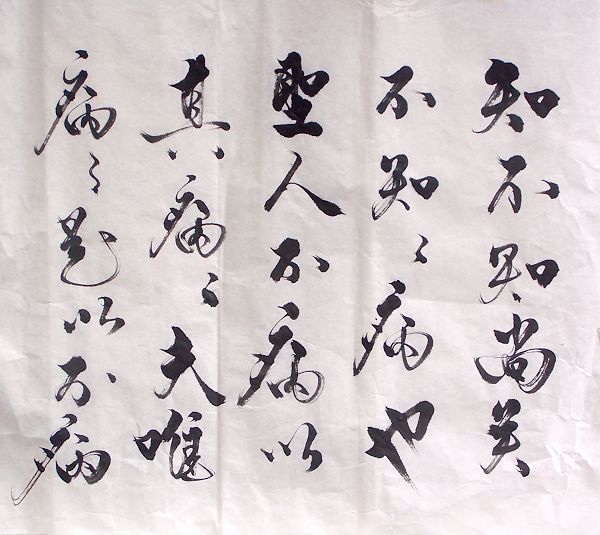 知不知尚矣
不知〻病也
聖人不病以
其病〻夫唯
病〻是以不病